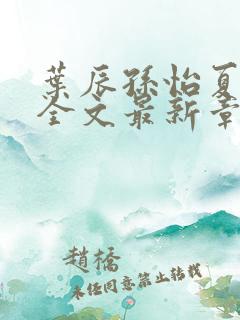 葉辰孫怡夏
全文最新章
趙橋
未经同意禁止转载